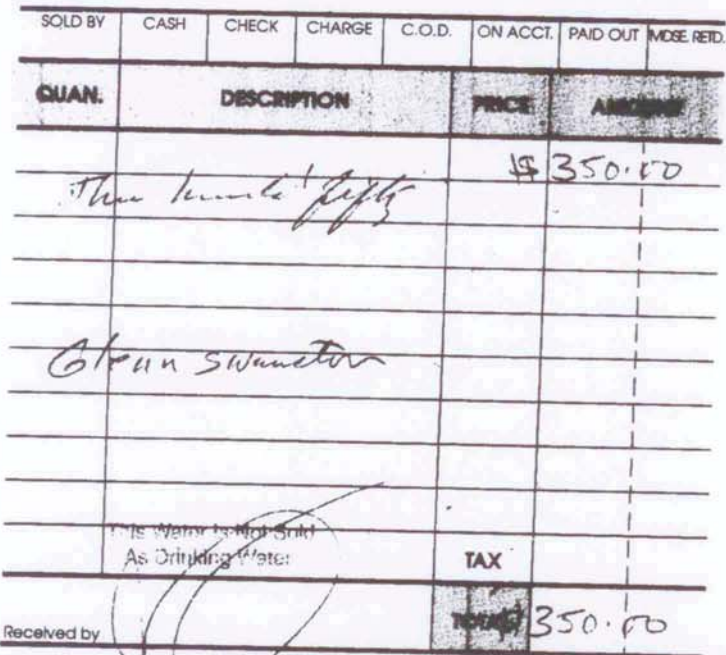 SOLD BY CASH CHECK CHARGE C.O.D. ON ACCT. PAID OUT MDSE. RETD.
QUAN. DESCRIPTION PRICE AMOUNT
$350.00
fifty
Glenn Swanston
This Water Is Not Sold
As Drinking Water
TAX
TOTAL 350.00
Received by